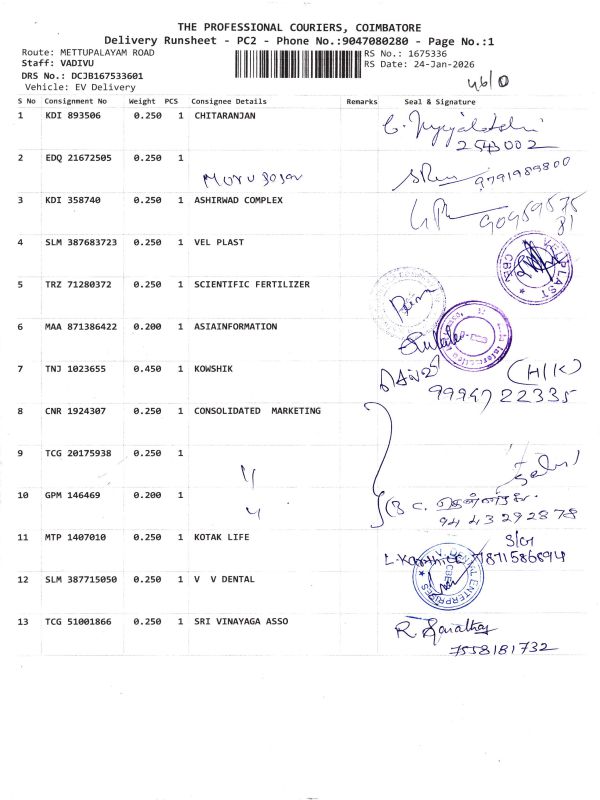 THE PROFESSIONAL COURIERS, COIMBATORE
Delivery Runsheet - PC2 - Phone No.:9047080280 - Page No.:1
Route: METTUPALAYAM ROAD
RS No.: 1675336
Staff: VADIVU
RS Date: 24-Jan-2026
DRS No.: DCJB167533601
Vehicle: EV Delivery
S No Consignment No Weight PCS Consignee Details Remarks Seal & Signature
1 KDI 893506 0.250 1 CHITARANJAN
2543002
2 EDQ 21672505 0.250 1
9791989800
3 KDI 358740 0.250 1 ASHIRWAD COMPLEX
9095957581
4 SLM 387683723 0.250 1 VEL PLAST
VEL PLAST
CBE
5 TRZ 71280372 0.250 1 SCIENTIFIC FERTILIZER
6 MAA 871386422 0.200 1 ASIAINFORMATION
7 TNJ 1023655 0.450 1 KOWSHIK
(H/K)
9994722335
8 CNR 1924307 0.250 1 CONSOLIDATED MARKETING
9 TCG 20175938 0.250 1
"
10 GPM 146469 0.200 1
"
9443292878
11 MTP 1407010 0.250 1 KOTAK LIFE
S/G
L.Karthick 7871586894
12 SLM 387715050 0.250 1 V V DENTAL
ENTERPRISES
13 TCG 51001866 0.250 1 SRI VINAYAGA ASSO
R Sarathy
7558181732